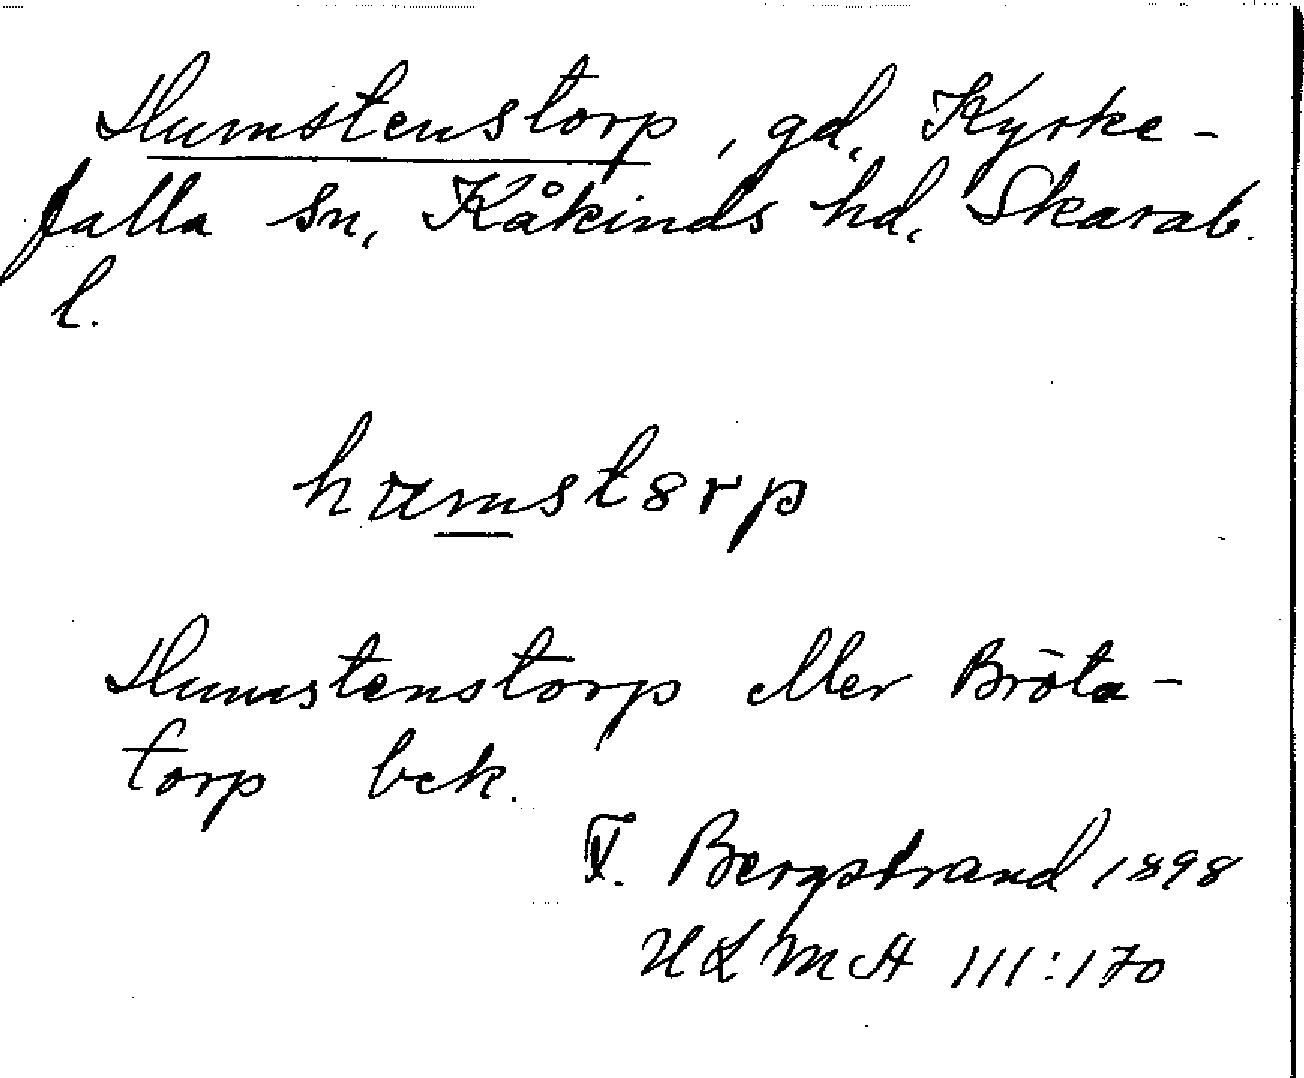 Humstenstorp, gd, Kyrke-
falla sn, Kåkinds hd, Skarab.
l.
humstorp
Humstenstorp eller Bröta-
torp bek.
T. Bergstrand 1898
ULMA 111:170